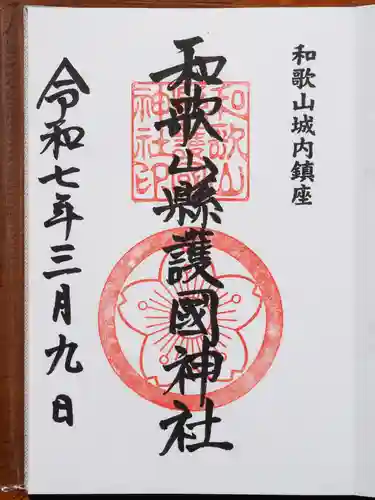 和歌山城内鎮座
和歌山縣護國神社
和歌山
縣護國
神社印
令和七年三月九日